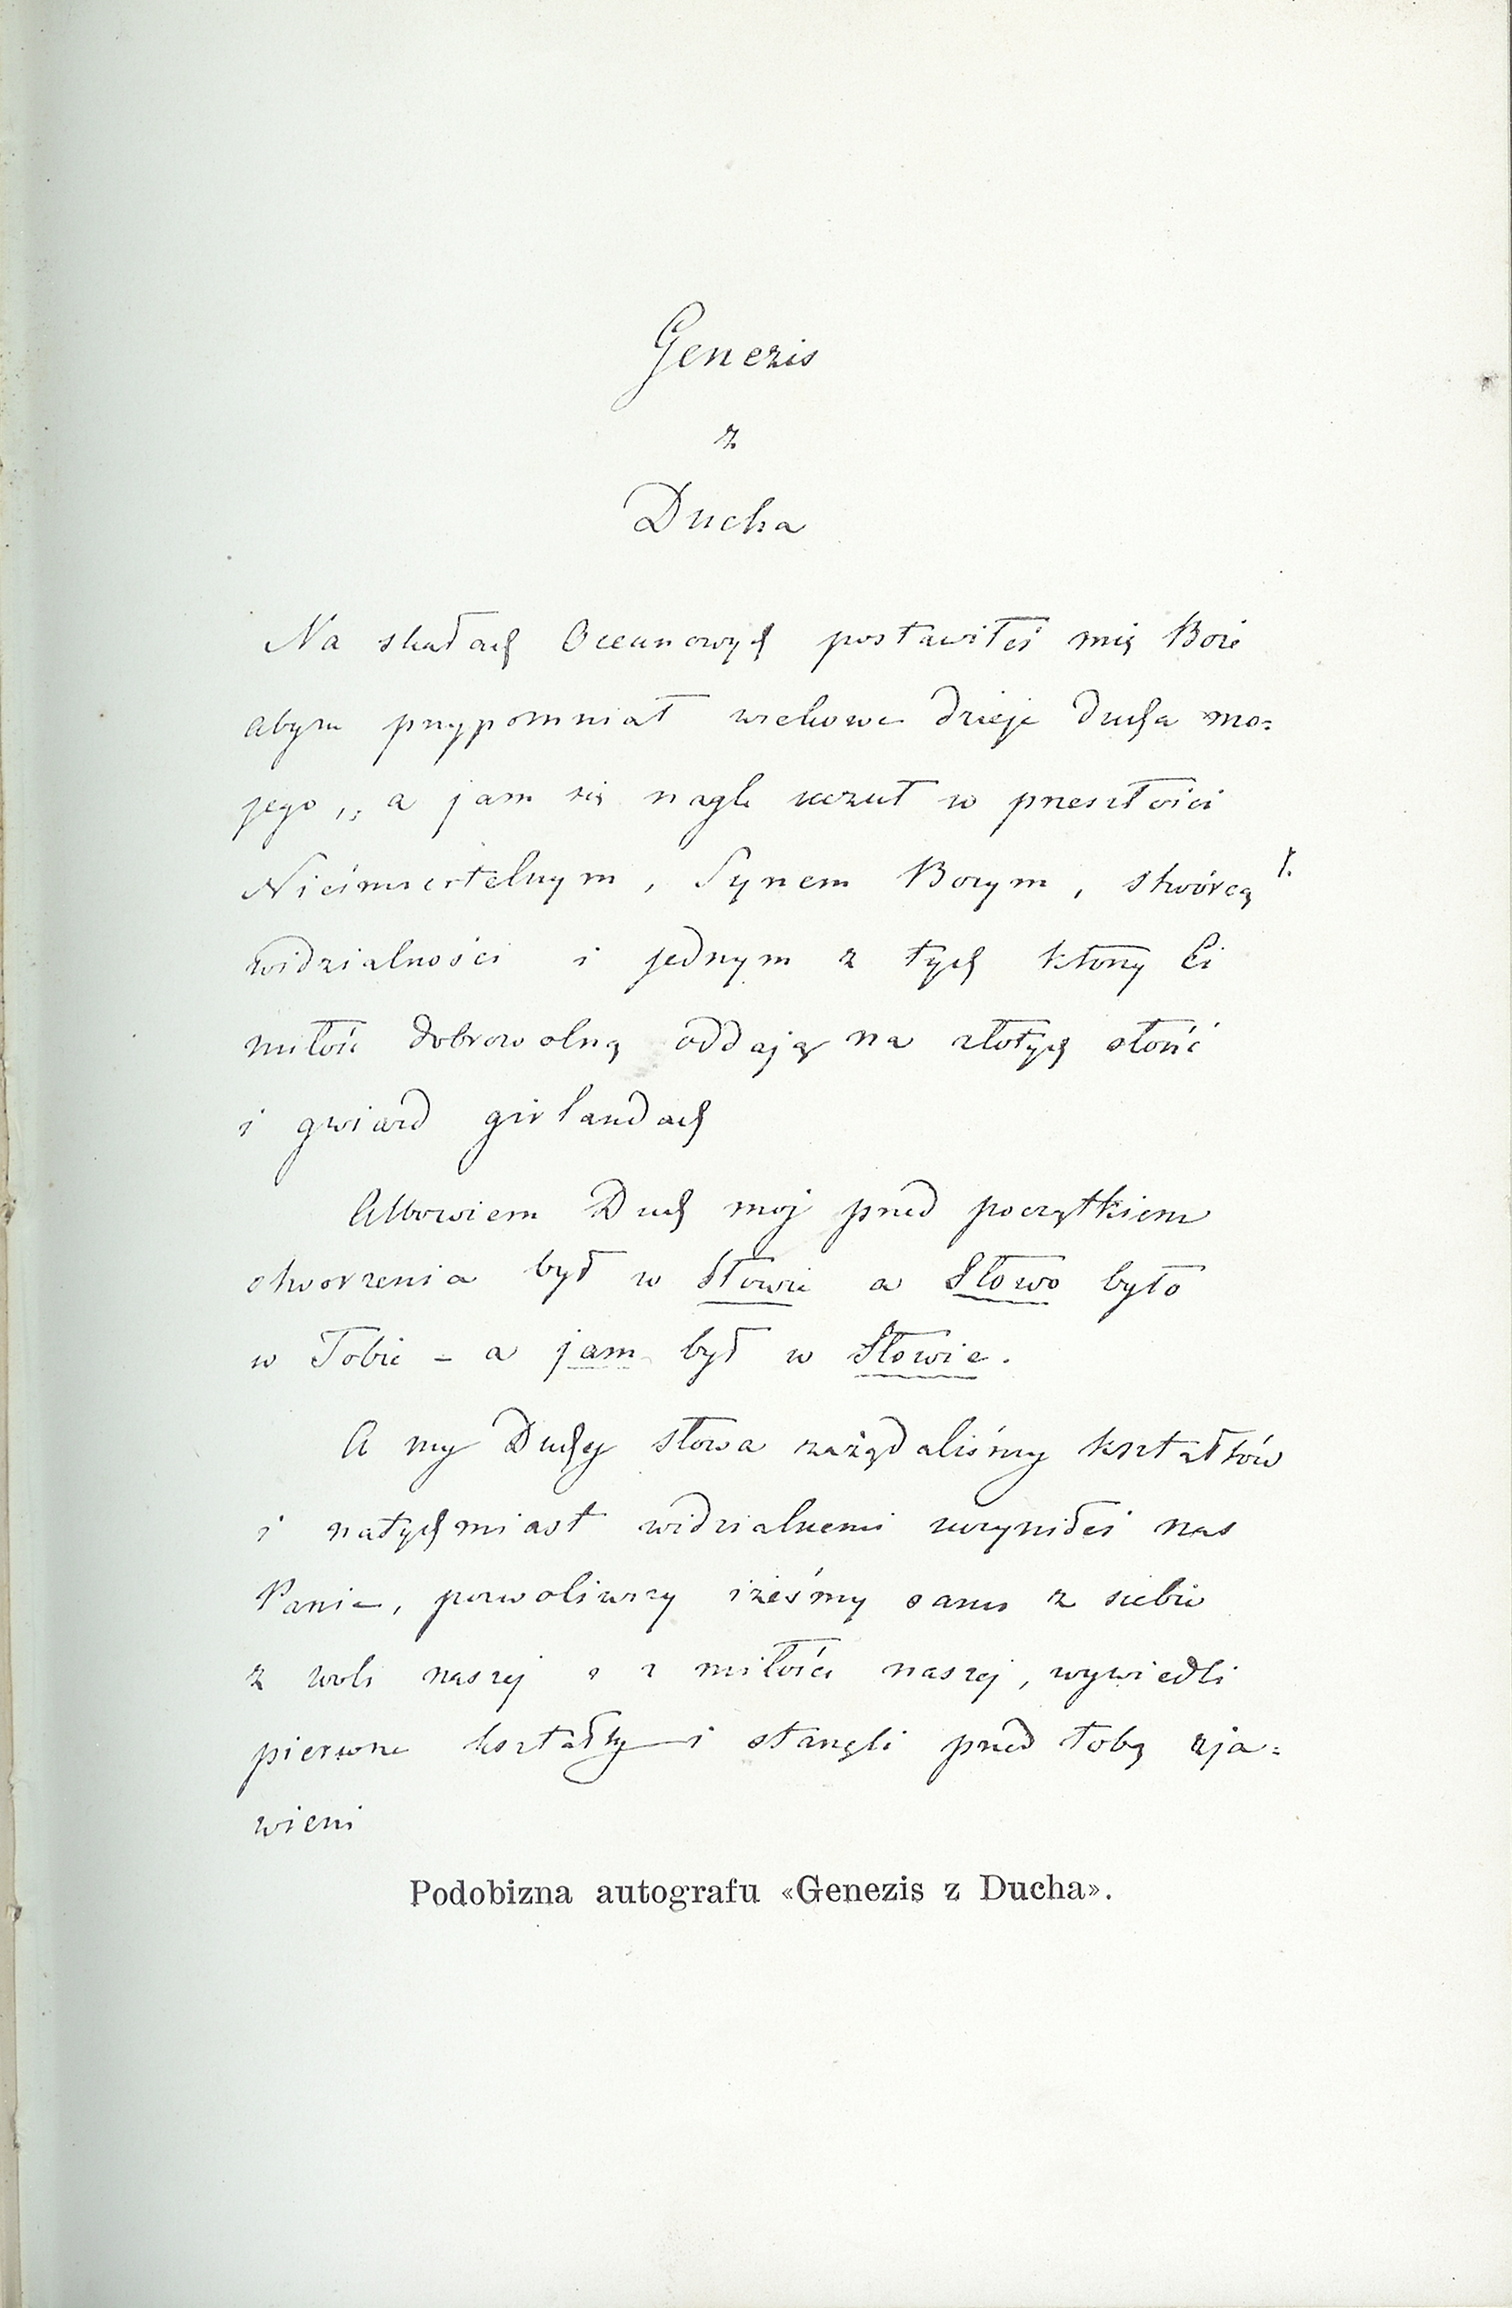 Genezis
z
Ducha
Na skałach Oceanowych postawiłeś mię Boże
abym przypomniał wiekowe dzieje ducha mo=
jego,, a jam się nagle uczuł w przeszłości
Nieśmiertelnym, Synem Bożym, stwórcą
widzialności i jednym z tych którzy Ci
miłość dobrowolną oddają na złotych słońc
i gwiazd girlandach
Albowiem Duch moj przed początkiem
stworzenia był w Słowie a Słowo było
w Tobie - a jam był w Słowie.
A my Duchy słowa zażądaliśmy kształtów
i natychmiast widzialnemi uczyniłeś nas
Panie, pozwoliwszy iżeśmy sami z siebie
z woli naszej i z miłości naszej, wywiedli
pierwsze kształty i stanęli przed tobą zja=
wieni
Podobizna autografu «Genezis z Ducha».